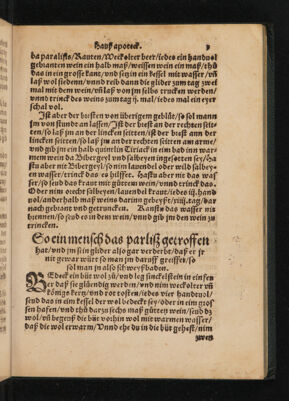 Hauß apoteck.
ba paralisis/Rauten/Weckolter beer/iedes ein handuol
gebranten wein ein halb maß/weissen wein ein maß/thů
das in ein grosse kant/vnd setz in ein kessel mit wasser/vñ
laß wol sieden/vnnd reib dann die glider zum tag zwey
mal mit dem wein/vñ laß von jm selbs trucken werden/
vnnd trinck des weins zum tag ij. mal/iedes mal ein eyer
schal vol.
Ist aber der bresten von überigem geblüt/so sol mann
jm von stundan an lassen/Ist der brest an der rechten seitten
so laß jm an der lincken seitten/ist der brest ann der
lincken seitten/so laß jm an der rechten seitten am arme/
vnnd gib jm ein halb quintlin Tiriack in ein bad inn war
mem wein da Bibergeyl vnd salbeyen ingesotten sey/ha
stu aber nit Bibergeyl/so nim lauendel oder wild salbey
en wasser/trinck das es hilfft. hastu aber nit das was
ser/so seud das kraut mit gůttem wein/vnnd trinck das.
Oder nim orecht salbeyen/lauendel kraut/iedes iij. hand
uol/ander halb maß weins daran gebeyst/iiij. tag/dar
nach gebrant vnd getruncken. Kanstu das wasser nit
brennen/so seud es in dem wein/vnnd gib jm den wein zu
trincken.
So ein mensch das parliß getroffen
hat/vnd jm sein glider also gar verderbt/daß er jr
nit gewar würt so man jm darauff greifft/so
sol man jn also schweyßbaden.
BEdeck ein büt wol zů/vnd leg sinckelstein in ein feu
er daß sie glüendig werden/vnd nim weckolter vñ
künigs kertz/vnd rot kosten/iedes vier handtuol/
seud das in ein kessel der wol bedeckt sey/oder in ein grossen
hafen/vnd thů darzu sechs maß gůtten wein/seud dz
wol/vñ begeuß die büt vorhin wol mit warmen wasser/
daß die wol erwarm/Vnnd ehe du in die büt gehest/nim
zwen